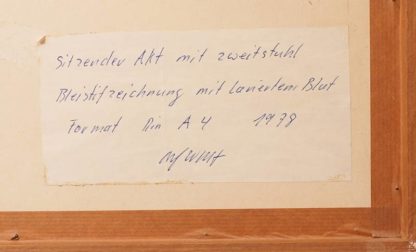 Sitzender Akt mit zweitstuhl
Bleistifzeichnung mit laviertem Blut
Format Din A4 1978